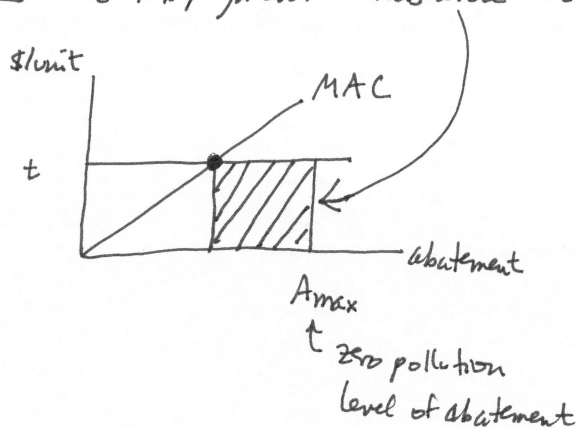 $/unit
MAC
t
abatement
Amax
zero pollution
level of abatement